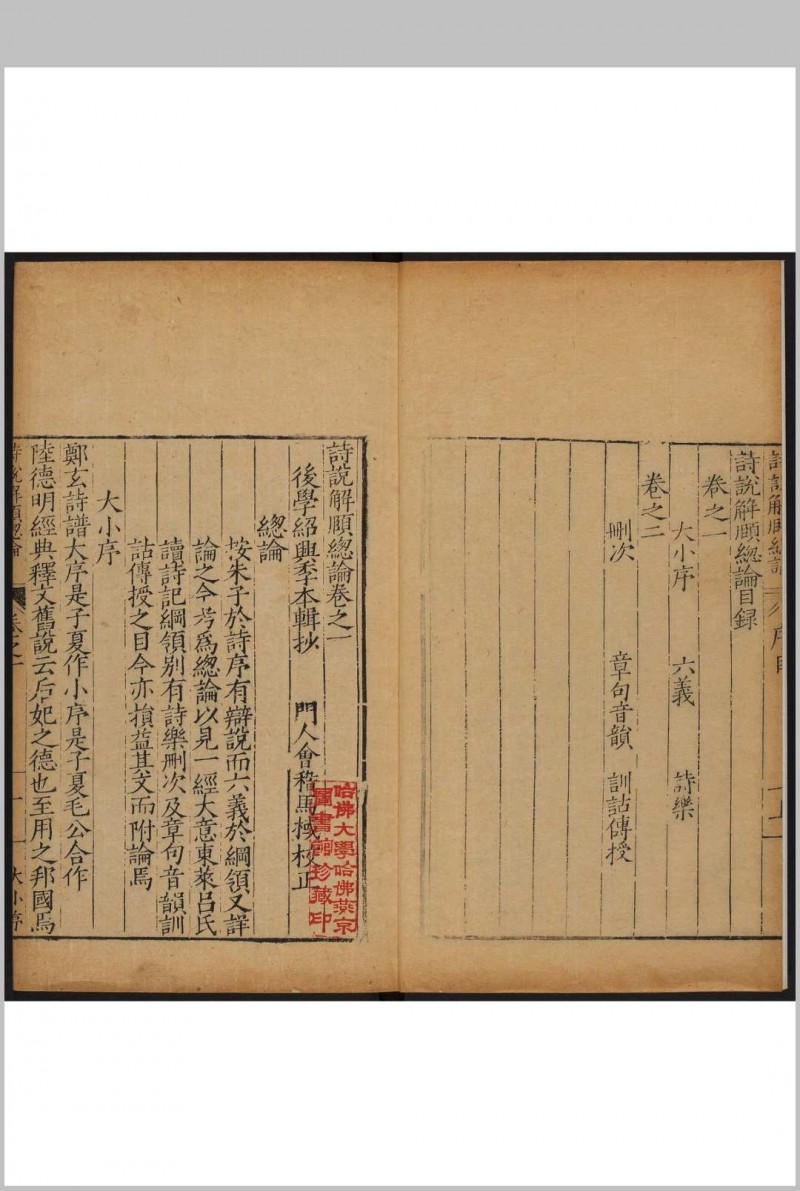 詩說解頤總論
序目
詩說解頤總論目録
卷之一
大小序　六義　詩樂
卷之二
刪次　章句音韻　訓詁傳授
詩說解頤總論卷之一
後學紹興季本輯抄　門人會稽馬棫校正
總論
按朱子於詩序有辯說而六義於綱領又詳
論之今考爲總論以見一經大意東萊呂氏
讀詩記綱領别有詩樂刪次及章句音韻訓
詁傳授之目今亦損益其文而附論焉
大小序
鄭玄詩譜大序是子夏作小序是子夏毛公合作
陸德明經典釋文舊說云后妃之德也至用之邦國焉
詩說解頤總論
卷之一
一
大小序
哈佛大學哈佛燕京
圖書館珍藏印